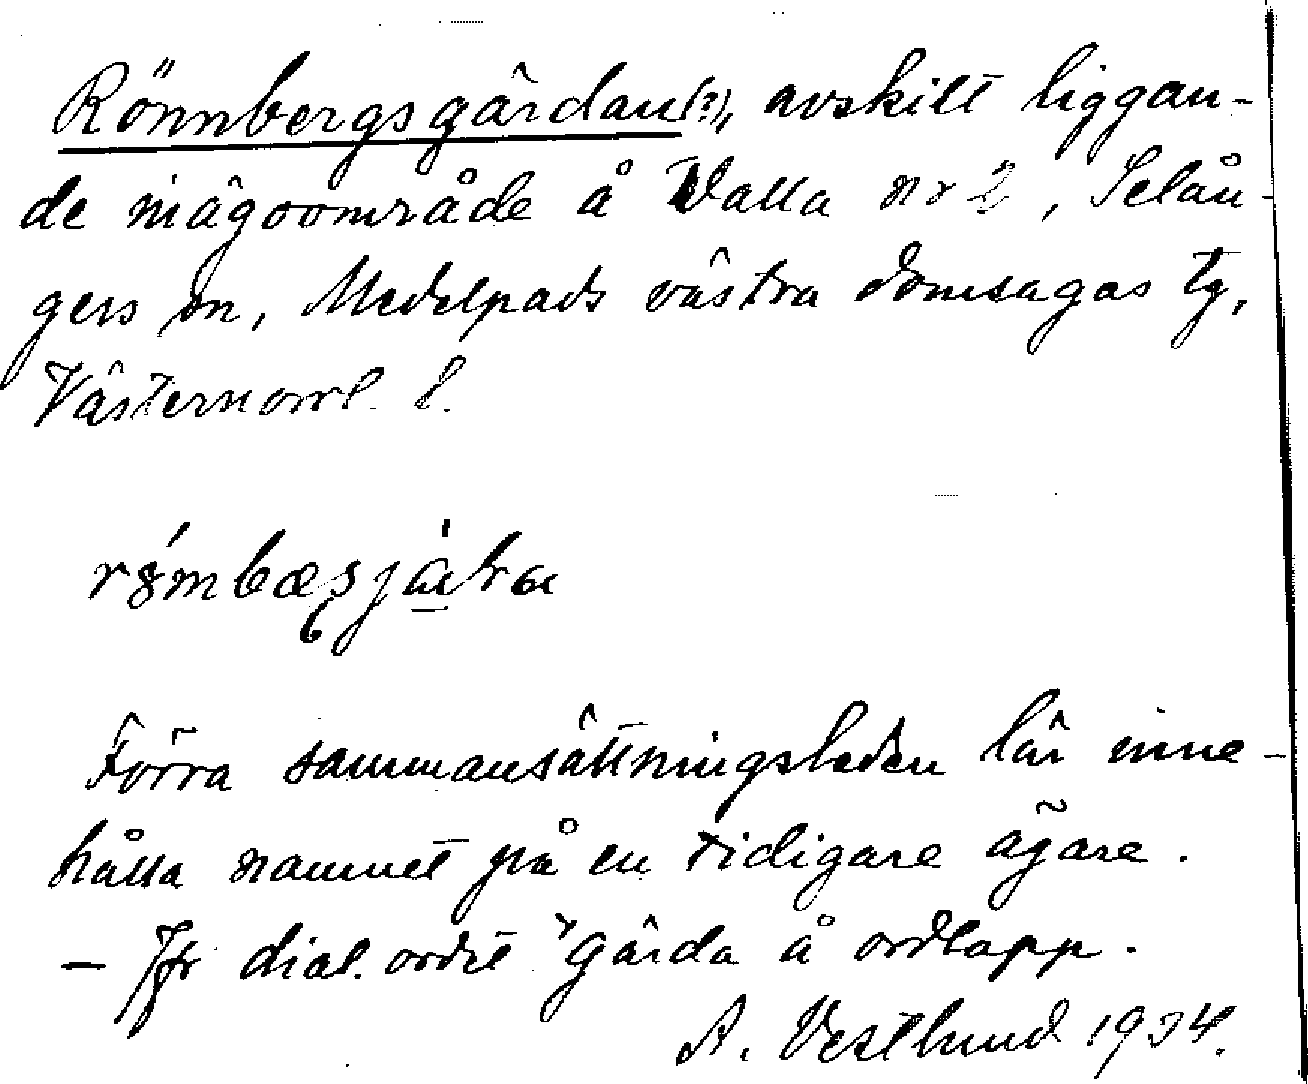 Rönnbergsgärdan(?), avskilt liggan-
de inägoområde å Valla nr 2, Selån-
gers sn, Medelpads västra domsagas tg,
Västernorrl. l.
Förra sammansättningsleden lär inne-
hålla namnet på en tidigare ägare.
– Jfr dial. ordet gärda å ordlapp.
A. Vestlund 1934.